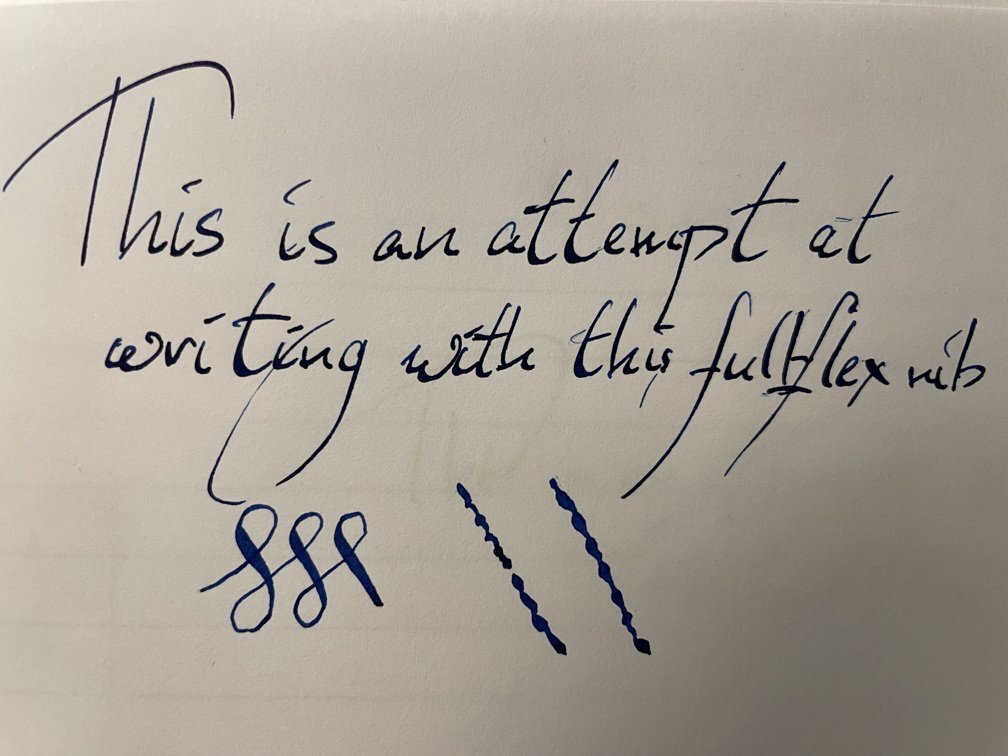 This is an attempt at
writing with this full flex nib